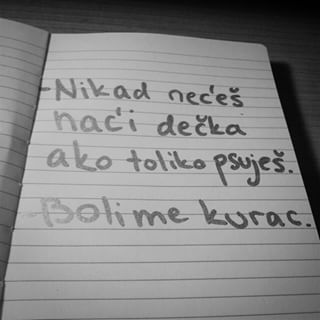 -Nikad nećeš
naći dečka
ako toliko psuješ.
-Boli me kurac.